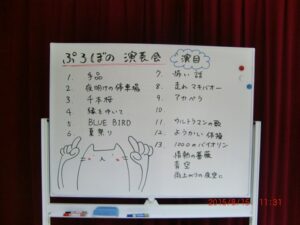 ぷろぼの 演芸会
演目
1. 手品
2. 夜明けの停車場
3. 千本桜
4. 縁をゆいて
5 BLUE BIRD
6 夏祭り
7. 怖い話
8. 走れマキバオー
9. アカペラ
10.
11. ウルトラマンの歌
12. ようかい体操
13. 1000のバイオリン
情熱の薔薇
青空
雨上がりの夜空に
2015/8/25 11:31